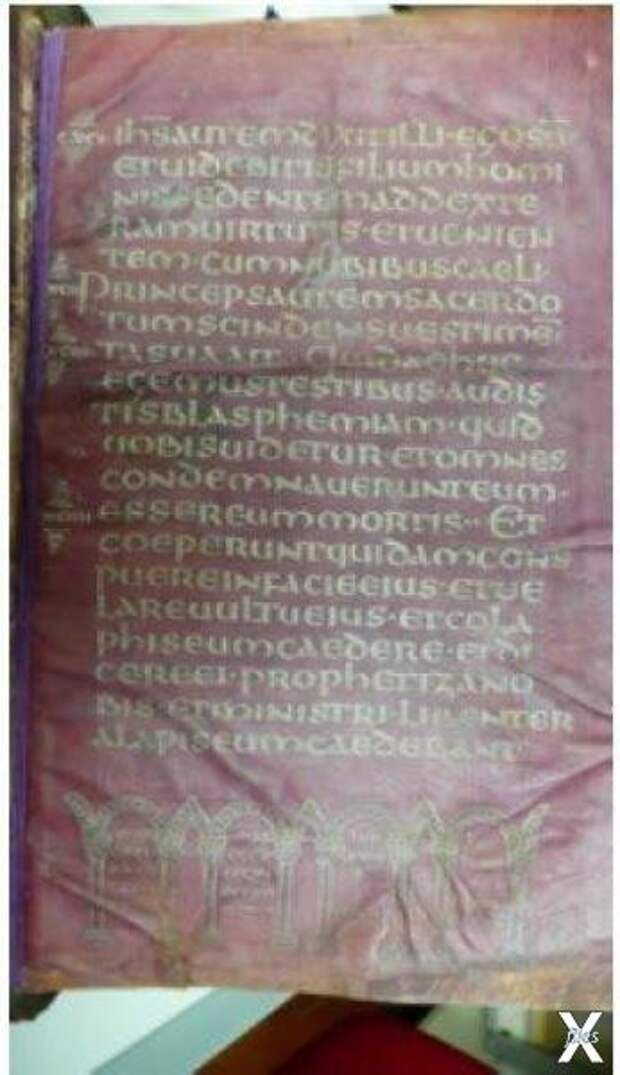 ihs̅autemdixitilli·egosu̅
etuidebitisfiliumhomi
nis·sedentemaddexte
ramuirtutis·etuenien
tem·cumnubibuscaeli·
Princepsautemsacerdo
tumscindensuestime̅
tasuaait·Quidadhuc
egemustestibus·audis
tisblasphemiam·quid
uobisuidetur·etomnes
condemnauerunteum·
essereummortis·Et
coeperuntquidamcons
puereinfacieeius·etue
lareuultueius·etcola
phiseumcaedere·etdi
cereei·prophetizano
bis·etministri·libenter
alapiseumcaedebant